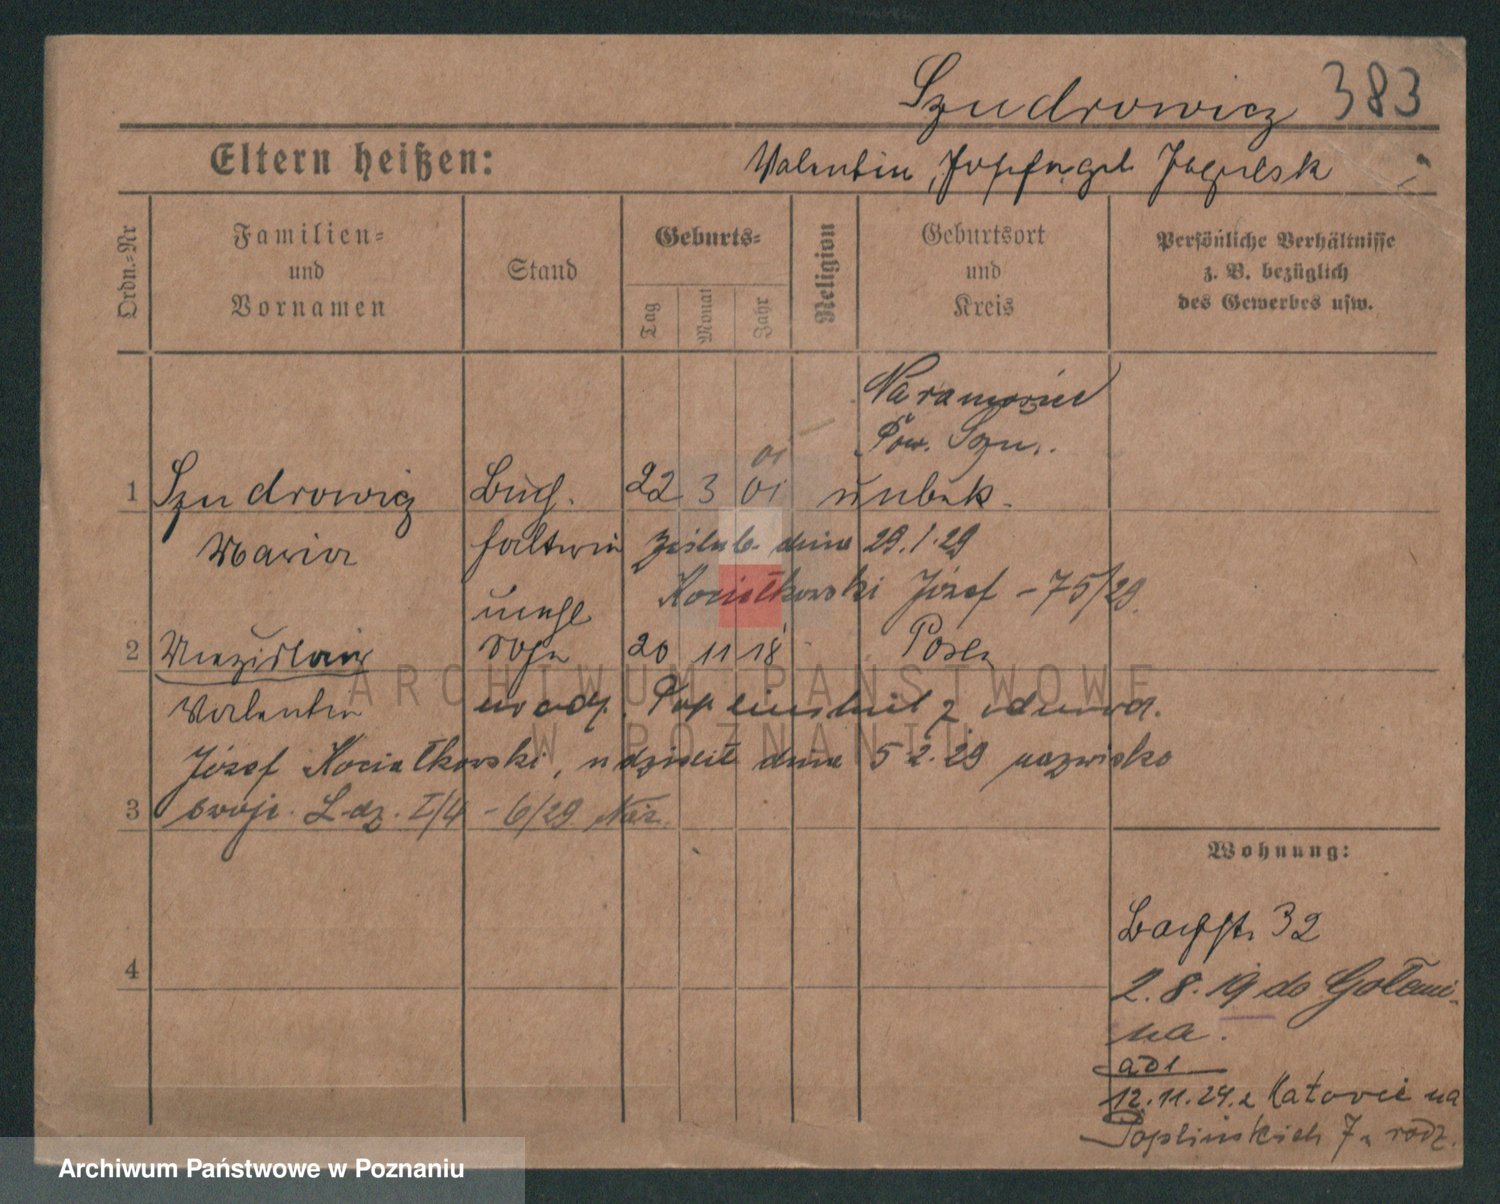 Szudrowicz 383
Eltern heißen:
Valentin, Josefa geb.
Ordn.=Nr
Familien=
und
Vornamen
Stand
Geburts=
Tag
Monat
Jahr
Religion
Geburtsort
und
Kreis
Persönliche Verhältnisse
z. B. bezüglich
des Gewerbes usw.
Naramowice
Pow. Szu..
01
1 Szudrowicz Buch. 22 3 01 unbek.
Maria halterin zaślub. dnia 29.1.29
Kociałkowski Józef - 75/29.
unehl
2 Mieczislaus Sohn 20 11 18 Posen
Valentin z
Józef Kociałkowski, udzielił dnia 5.2.29 nazwisko
3 swoje. L.dz. I/4 - 6/29
Wohnung:
Bachstr. 32
4
2.8.19 do Gołęci-
na.
ad 1
12.11.24. z Katowic na
Poplińskich 7 u rodz.
ARCHIWUM PAŃSTWOWE
W POZNANIU
Archiwum Państwowe w Poznaniu